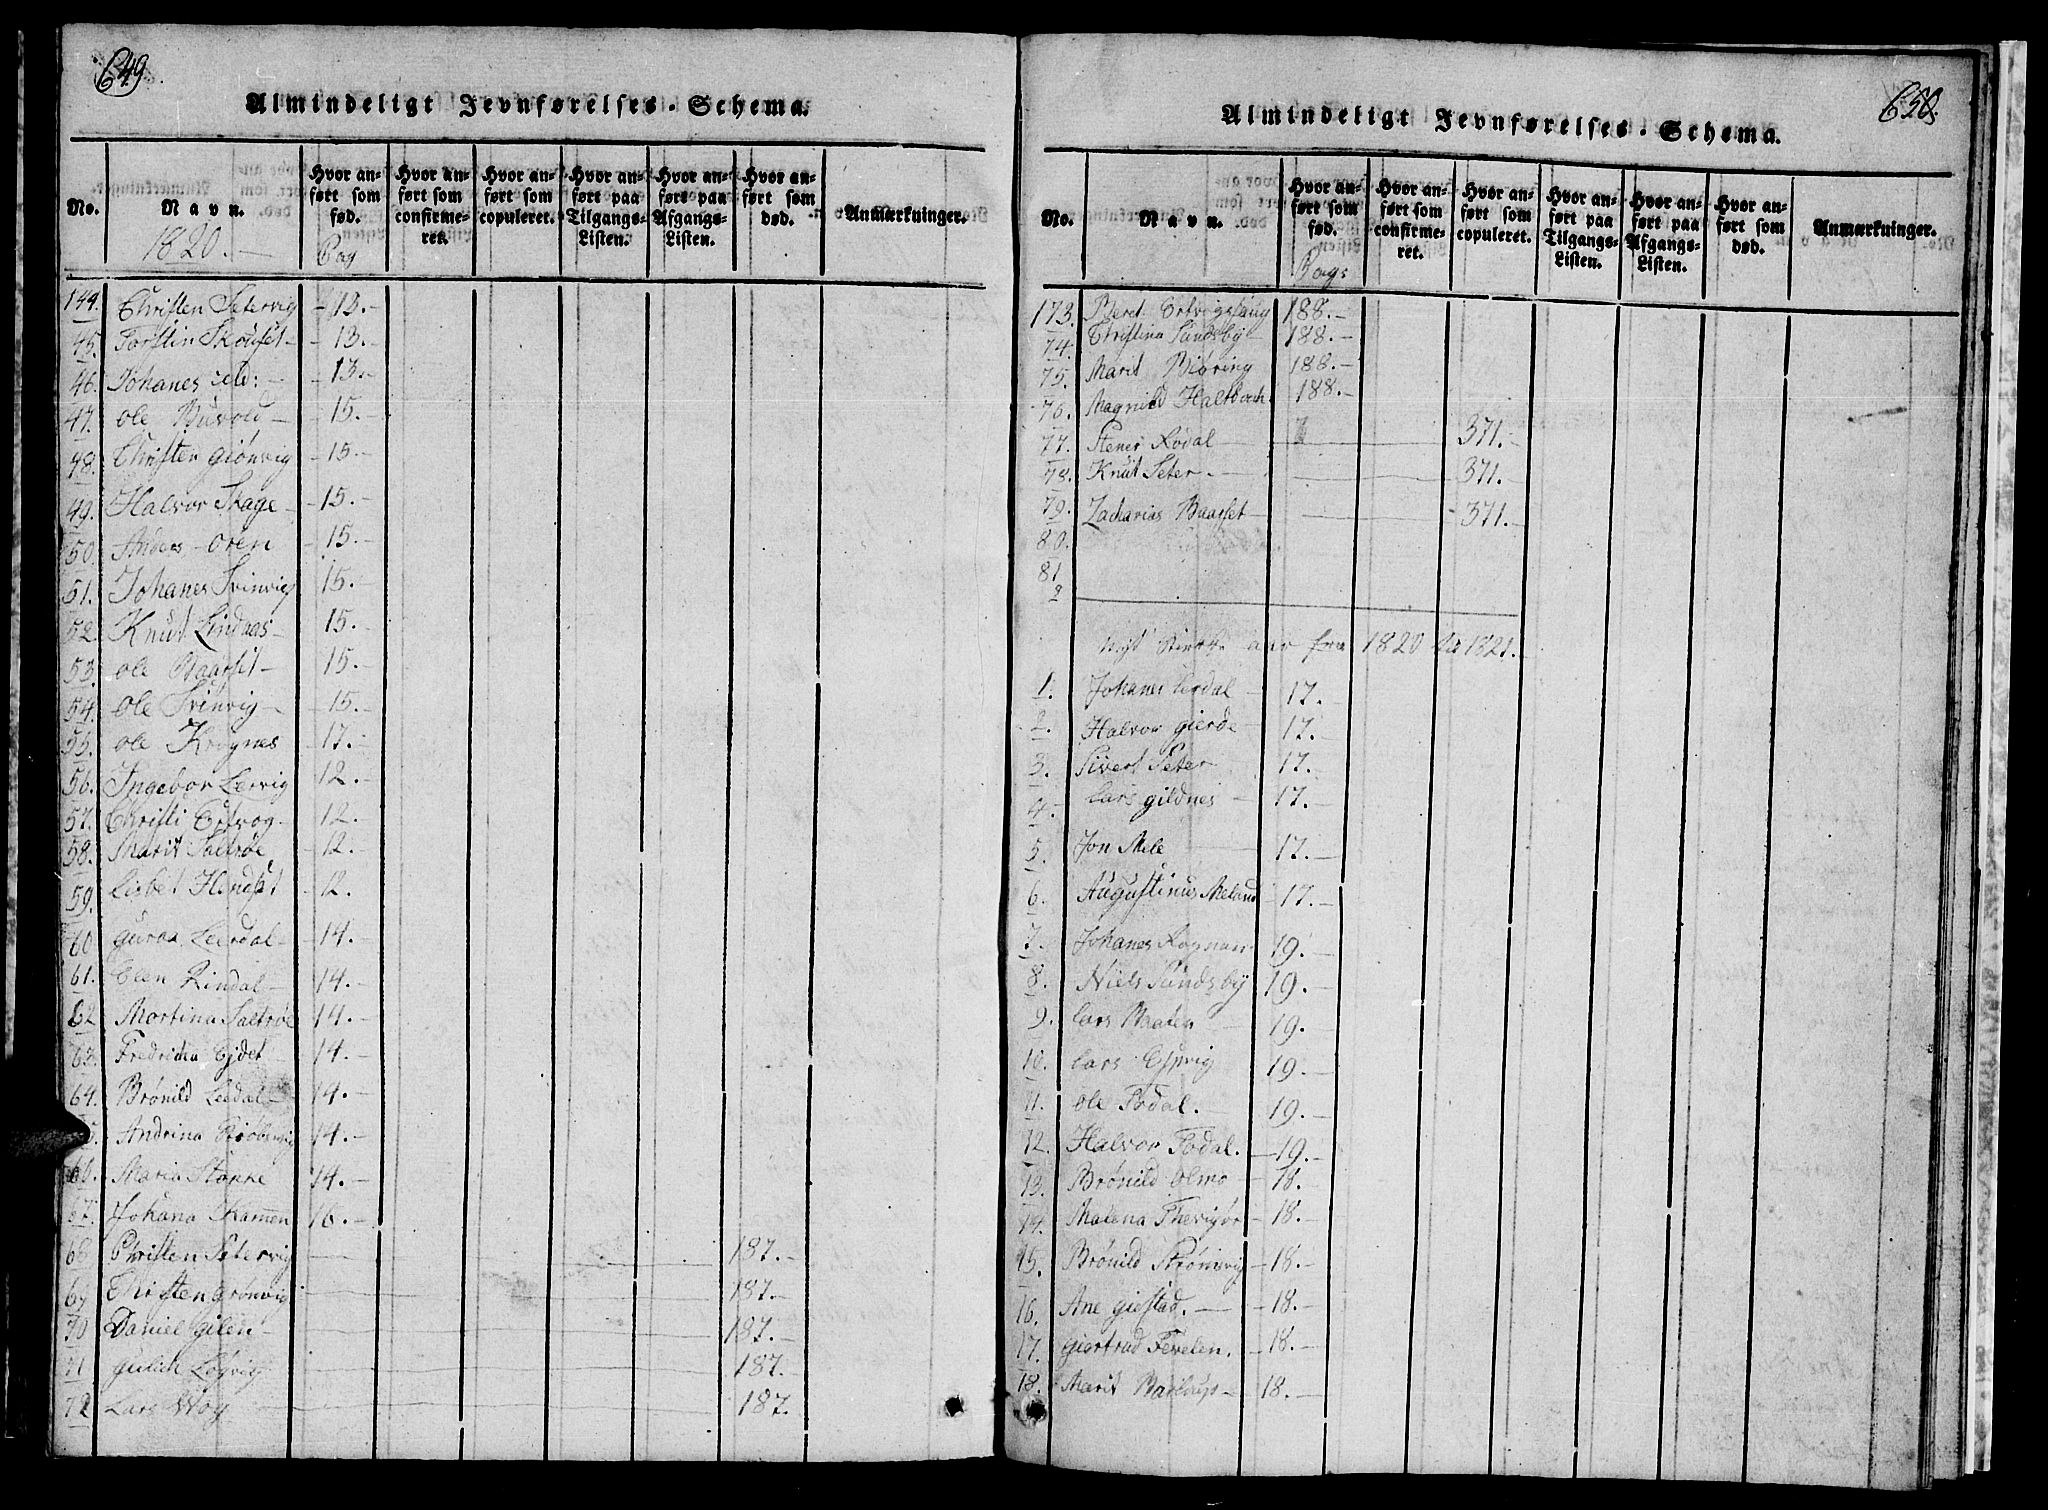 649
Almindeligt Jevnførelses-Schema.
No. Navn. Hvor anført som fød. Hvor anført som confirmeret. Hvor anført som copuleret. Hvor anført paa Tilgangs-Listen. Hvor anført paa Afgangs-Listen. Hvor anført som død. Anmærkninger.
1820. Pag
144. Christen Setervig 13.
45. Torstin Skouset 13.
46. Johanes 13.
47. Ole Buvold 15.
48. Christen Giönvig 15.
49. Halvor Skage 15.
50. Anders Oren 15.
51. Johanes Svinvig 15.
52. Knut Lindaas 15.
53. Ole Baarset 15.
54. Ole Svinvig 15.
55. Ole Krognes 17.
56. Ingebor Lervig 12.
57. Christi 12.
58. Marit Saltrøe 12.
59. Lisbet Hendset 12.
60 Guraa Leerdal 14.
61. Elen Rindal 14.
62 Mortina Saltrøe 14.
63. Fredricha Eidet 14.
64. Brönild Leedal 14.
Andrina 14.
66. Maria Stokke 14.
67. Johana Kamen 16.
68 Christen Setervig 187.
69 Christen Grönvig 187.
70 Daniel Gilen 187.
71 Gulich Løgvig 187.
72 Lars Woy 187.
650.
Almindeligt Jevnførelses-Schema.
No. Navn. Hvor anført som fød. Hvor anført som confirmeret. Hvor anført som copuleret. Hvor anført paa Tilgangs-Listen. Hvor anført paa Afgangs-Listen. Hvor anført som død. Anmærkninger.
Pag:
173. Beret 188.
74. Christina Sundsby 188.
75. Marit Biöring 188.
76. Magnild Haltbach 188.
77. Stener Rødal 371.
78. Knut Seter 371.
79. Zacharias Baarset 371.
80.
81
2
aar fra 1820 til 1821.
1. Johanes Lerdal 17.
2. Halvor Gierde 17.
3. Sivert Seter 17.
4. Lars Gildnes 17.
5. Jon Mele 17.
6. Augustinus Meland 17.
7. Johanes Rognan 19.
8. Niels Sundsby 19.
9. Lars 19.
10. Lars Espvig 19.
11. Ole Todal. 19.
12. Halvor Todal. 19.
13. Brönild Olmo 18.
14. Malena 18.
15. Brönild 18.
16. Ane Giestad. 18.
17. Giertrud Fevelen. 18.
18. Marit 18.